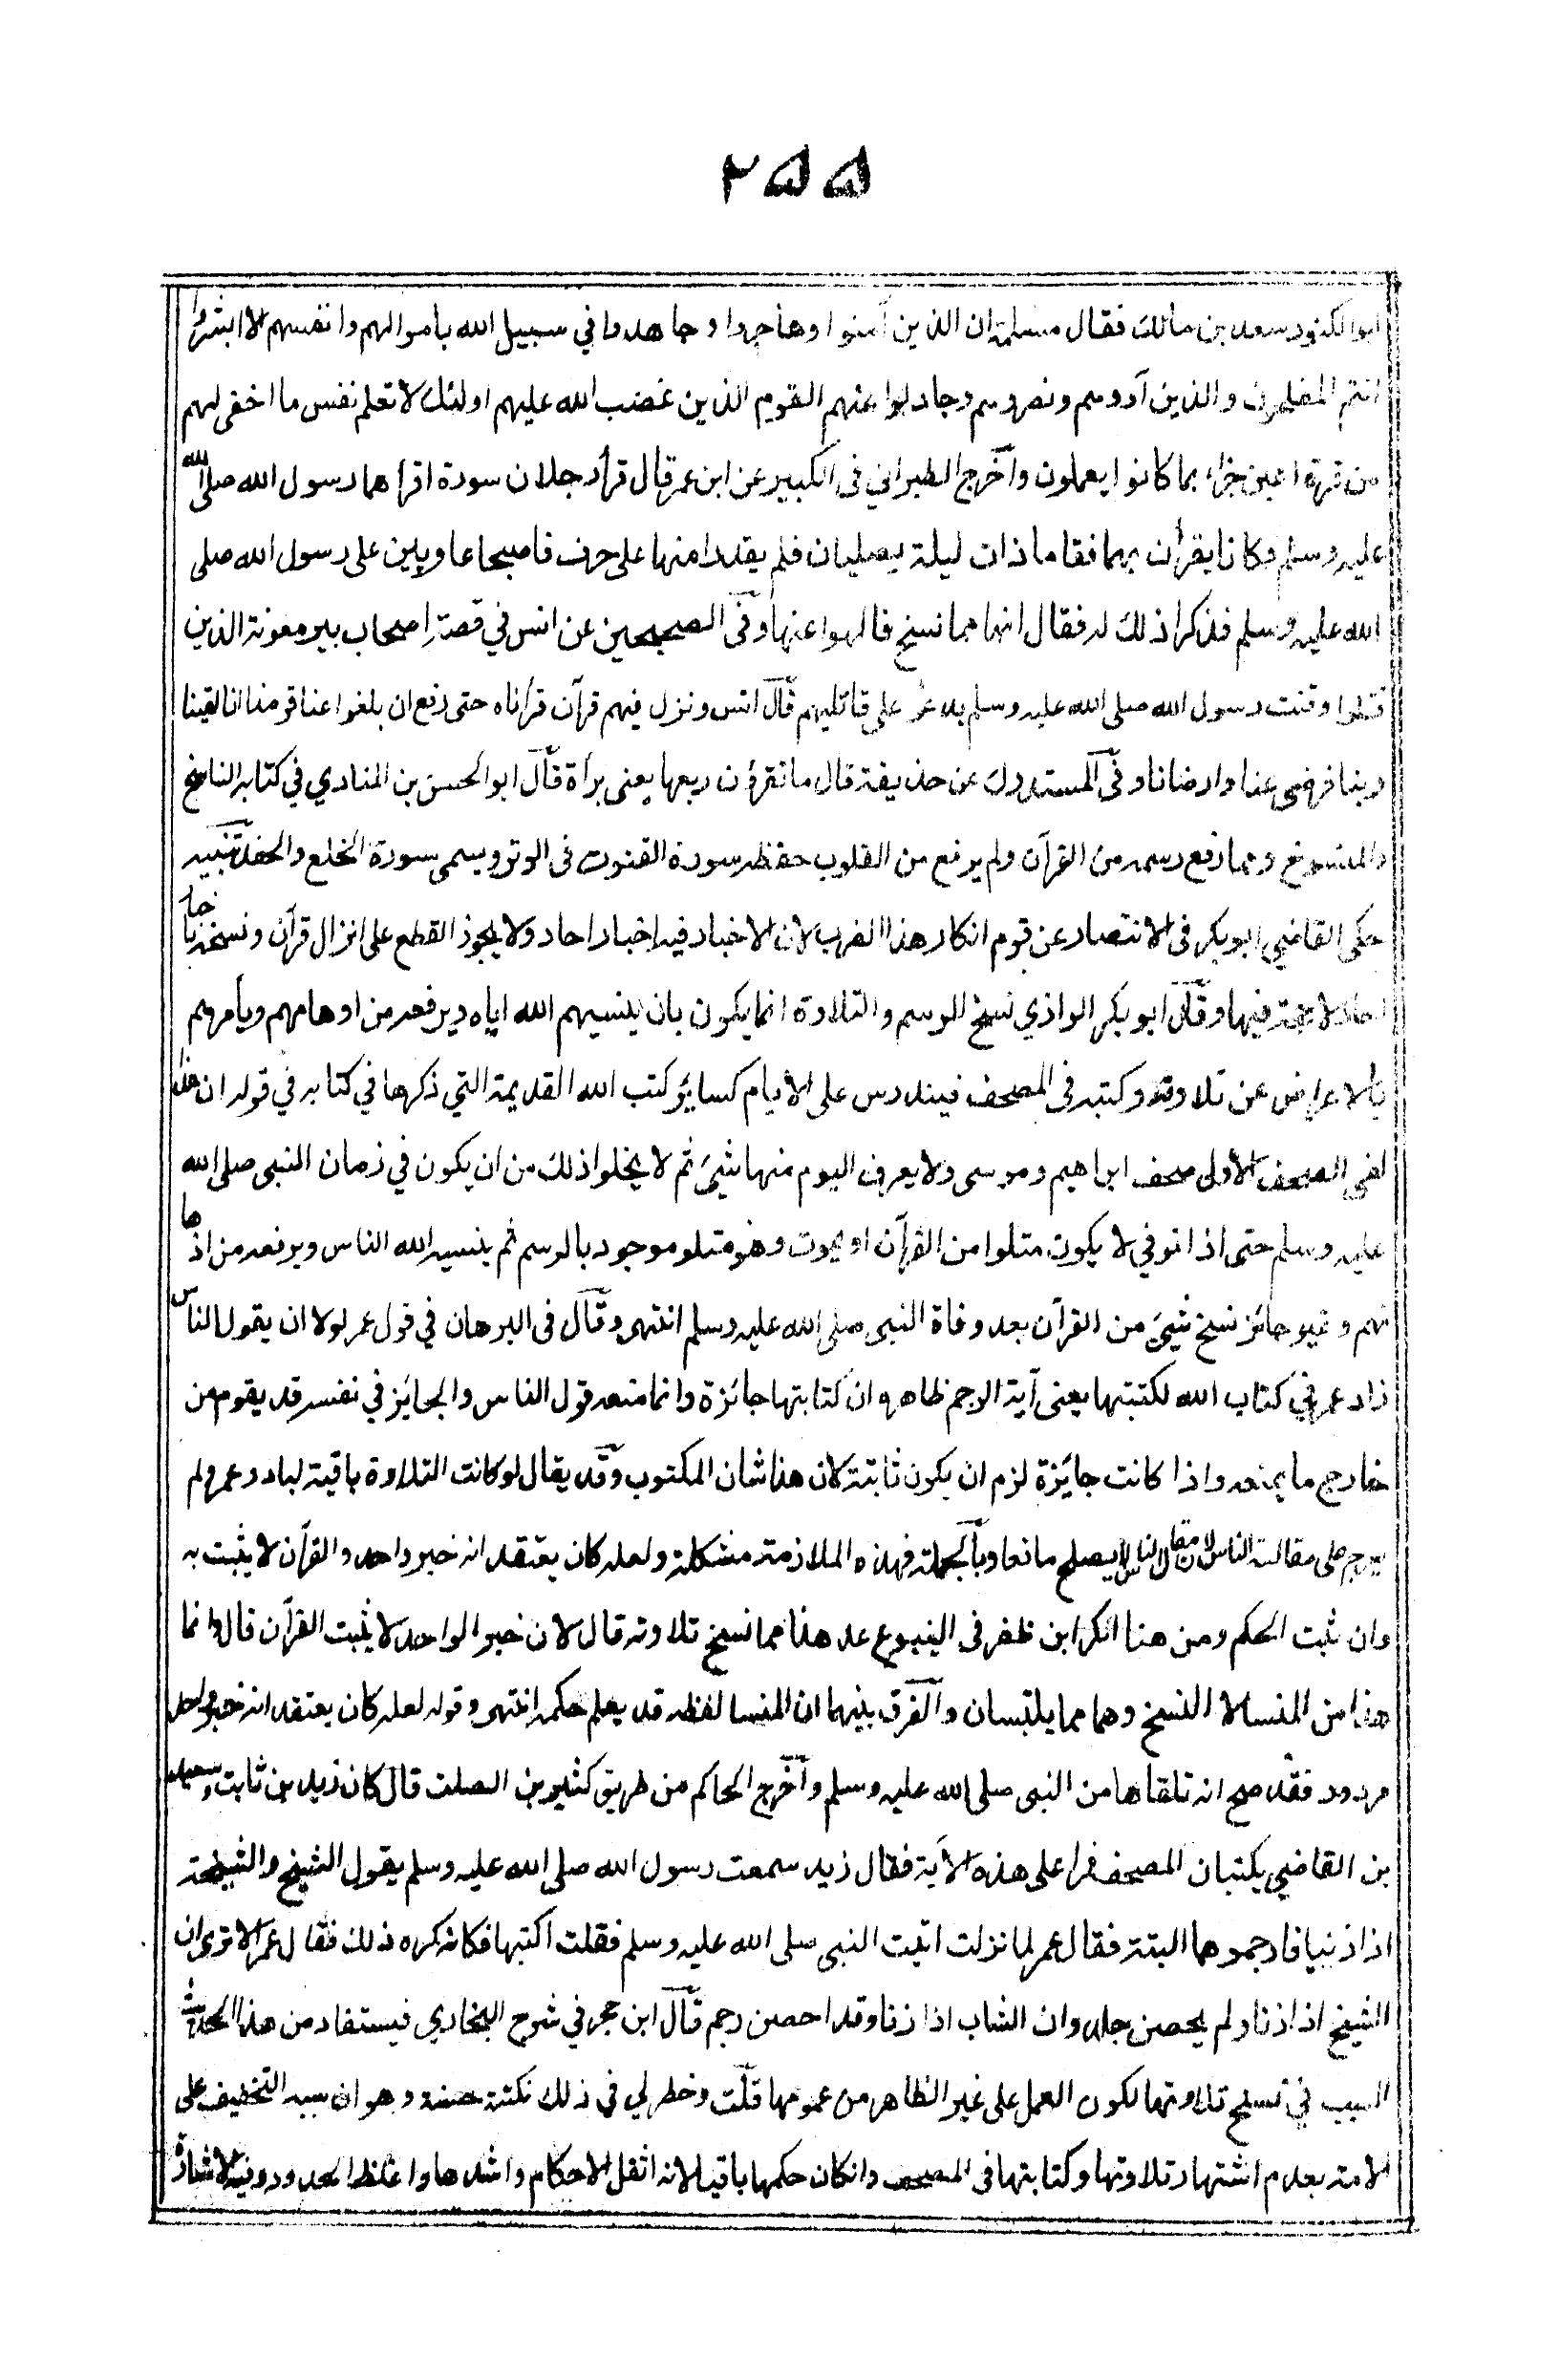 ٢٥٥
ابو الكنود سعد بن مالك فقال مسلمة ان الذين آمنوا وهاجروا وجاهدوا في سبيل الله باموالهم وانفسهم الا ابشروا
انتم المفلحون والذين آووهم ونصروهم وجادلوا عنهم القوم الذين غضب الله عليهم اولئك لا تعلم نفس ما اخفى لهم
من قرة اعين جزاء بما كانوا يعملون وآخرج الطبراني فى الكبير عن ابن عمر قال قرأ رجلان سورة اقرأهما رسول الله صلى الله
عليه وسلم وكانا يقرأن بهما فقاما ذات ليلة يصليان فلم يقدرا منها على حرف فاصبحا غاديين على رسول الله صلى
الله عليه وسلم فذكرا ذلك له فقال انها مما نسخ فالهوا عنها وفى الصحيحين عن انس في قصة اصحاب بير معونة الذين
قتلوا وقنت رسول الله صلى الله عليه وسلم يدعو على قاتليهم قال انس ونزل فيهم قرآن قرأناه حتى رفع ان بلغوا عنا قومنا انا لقينا
ربنا فرضى عنا وارضانا وفى المستدرك عن حذيفة قال ما تقرؤن ربعها يعنى برأة قال ابو الحسن بن المنادي في كتابه الناسخ
والمنسوخ ومما رفع رسمه من القرآن ولم يرفع من القلوب حفظه سورة القنوت فى الوتر ويسمى سورة الخلع والحفد تنبيه
حكى القاضي ابو بكر فى الانتصار عن قوم انكار هذا الضرب لان الاخبار فيه اخبار احاد ولا يجوز القطع على انزال قرآن ونسخه باخبار
احاد لا حجة فيها وقال ابو بكر الرازي نسخ الرسم والتلاوة انما يكون بان ينسيهم الله اياه ويرفعه من اوهامهم ويأمرهم
بالاعراض عن تلاوته وكتبه فى المصحف فيندرس على الايام كسائر كتب الله القديمة التي ذكرها في كتابه في قوله ان هذا
لفى الصحف الاولى صحف ابراهيم وموسى ولا يعرف اليوم منها شيئ ثم لا يخلوا ذلك من ان يكون في زمان النبى صلى الله
عليه وسلم حتى اذا توفي لا يكون متلوا من القرآن او يموت وهو متلو موجود بالرسم ثم ينسيه الله الناس ويرفعه من اذها
نهم وغير جائز نسخ شيئ من القرآن بعد وفاة النبى صلى الله عليه وسلم انتهى وقال فى البرهان في قول عمر لولا ان يقول الناس
زاد عمر في كتاب الله لكتبتها يعنى آية الرجم ظاهره ان كتابتها جائزة وانما منعه قول الناس والجائز في نفسه قد يقوم من
خارج ما يمنعه واذا كانت جايزة لزم ان يكون ثابتة لان هذا شان المكتوب وقد يقال لو كانت التلاوة باقية لبادر عمر ولم
يعرج على مقالة الناس لان مقال الناس لا يصلح مانعا وبالجملة فهذه الملازمة مشكلة ولعله كان يعتقد انه خبر واحد والقرآن لا يثبت به
وان ثبت الحكم ومن هنا انكر ابن ظفر فى الينبوع عد هذا مما نسخ تلاوته قال لان خبر الواحد لا يثبت القرآن قال وانما
هذا من المنسا لا النسخ وهما مما يلتبسان والفرق بينهما ان المنسا لفظه قد يعلم حكمه انتهى وقوله لعله كان يعتقد انه خبر واحد
مردود فقد صح انه تلقاها من النبى صلى الله عليه وسلم وآخرج الحاكم من طريق كثير بن الصلت قال كان زيد بن ثابت وسعيد
بن القاضي يكتبان المصحف فمرا على هذه الآية فقال زيد سمعت رسول الله صلى الله عليه وسلم يقول الشيخ والشيخة
اذا زنيا فارجموهما البتة فقال عمر لما نزلت اتيت النبى صلى الله عليه وسلم فقلت اكتبها فكانه كره ذلك فقال عمر الا ترى ان
الشيخ اذا زنا ولم يحصن جلد وان الشاب اذا زنا وقد احصن رجم قال ابن حجر في شرح البخاري فيستفاد من هذا الحديث
السبب في نسخ تلاوتها لكون العمل على غير الظاهر من عمومها قلت وخطر لي في ذلك نكتة حسنة وهو ان سببه التخفيف على
الامة بعدم اشتهار تلاوتها وكتابتها فى المصحف وانكان حكمها باقيا لانه اثقل الاحكام واشدها واغلظ الحدود وفيه الاشارة